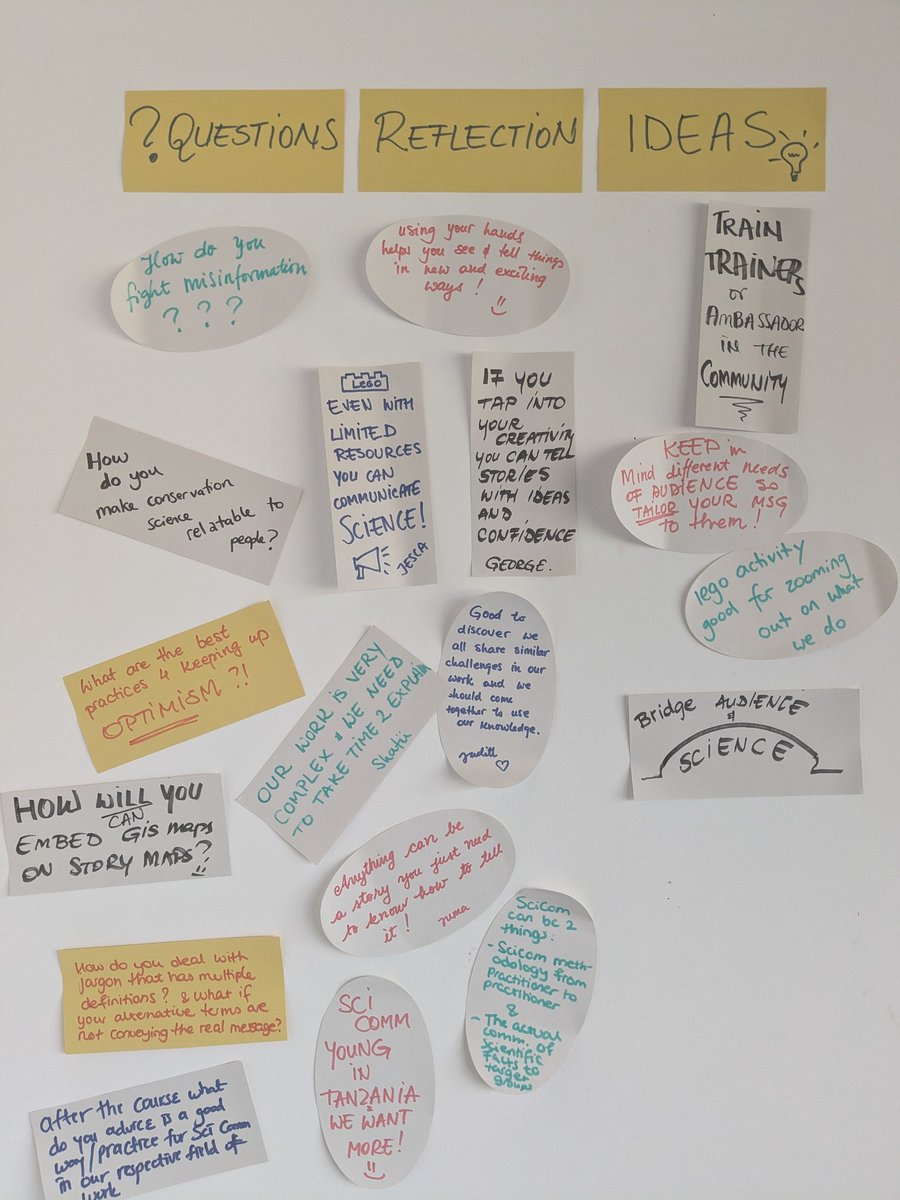 ? QUESTIONS
How do you
fight misinformation
? ? ?
How
do you
make conservation
science
relatable to
people?
What are the best
practices 4 keeping up
OPTIMISM ?!
HOW WILL YOU
CAN
EMBED GIS maps
ON STORY MAPS?
How do you deal with
jargon that has multiple
definitions? & what if
your alternative terms are
not conveying the real message?
After the course what
do you advice is a good
way/practice for Sci Comm
in our respective field of
work
REFLECTION
using your hands
helps you see & tell things
in new and exciting
ways!
LEGO
EVEN WITH
LIMITED
RESOURCES
YOU CAN
COMMUNICATE
SCIENCE!
JESCA
IF YOU
TAP INTO
YOUR
CREATIVITY
YOU CAN TELL
STORIES
WITH IDEAS
AND
CONFIDENCE
GEORGE.
OUR WORK IS VERY
COMPLEX & WE NEED
TO TAKE TIME 2 EXPLAIN
Good to
discover we
all share similar
challenges in our
work and we
should come
together to use
our knowledge.
Anything can be
a story you just need
to know how to tell
it!
SciCom
can be 2
things:
- Scicom meth-
odology from
Practitioner to
practitioner
&
- The actual
comm. of
scientific
facts to
target
groups
SCI
COMM
YOUNG
IN
TANZANIA
WE WANT
MORE!
IDEAS
TRAIN
TRAINERS
or
AMBASSADOR
IN THE
COMMUNITY
KEEP in
Mind different needs
OF AUDIENCE SO
TAILOR YOUR MSG
to them!
lego activity
good for zooming
out on what
we do
Bridge AUDIENCE
&
SCIENCE